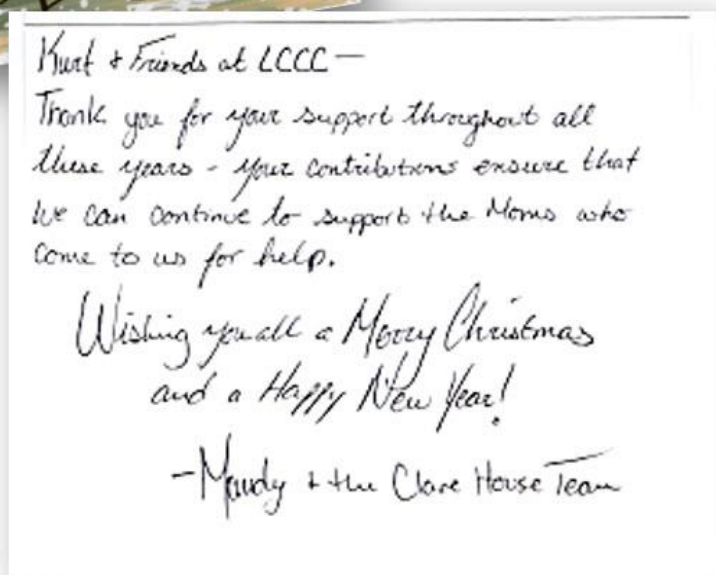 Kurt & Friends at LCCC —
Thank you for your support throughout all
these years - your contributions ensure that
we can continue to support the Moms who
come to us for help.
Wishing you all a Merry Christmas
and a Happy New Year!
- Mandy & the Clare House Team